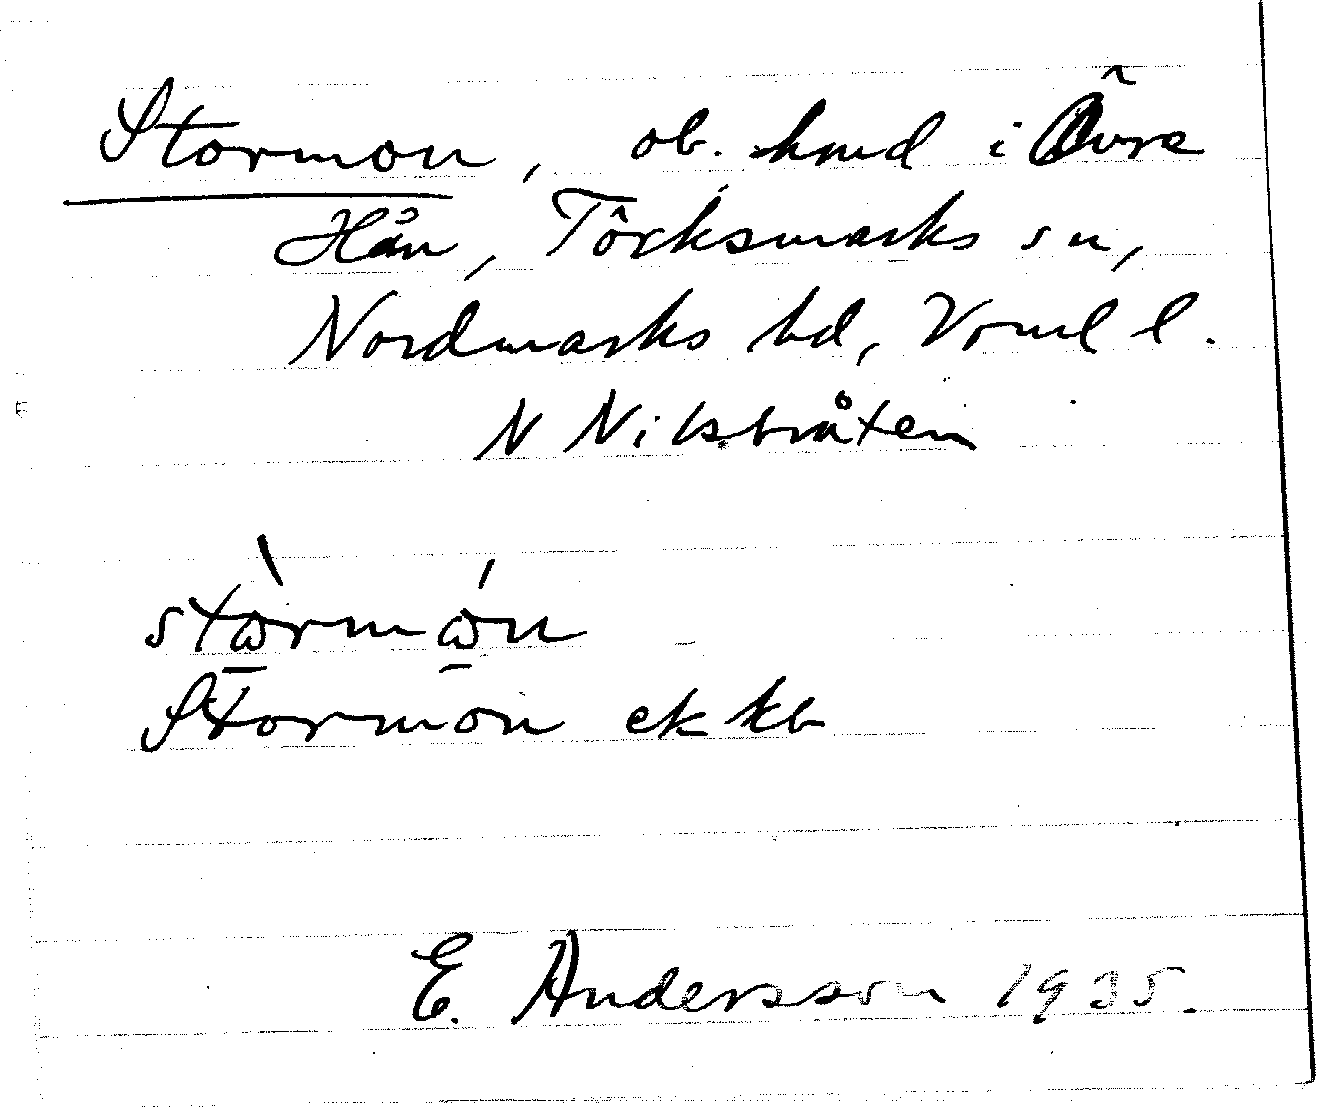 Stormon, ob. hmd i Övre
Hån, Töcksmarks sn,
Nordmarks hd, Vrml l.
N Nilsbråten
stɷ̀rmɷ́n
Stormon ek kb
E. Andersson 1935.